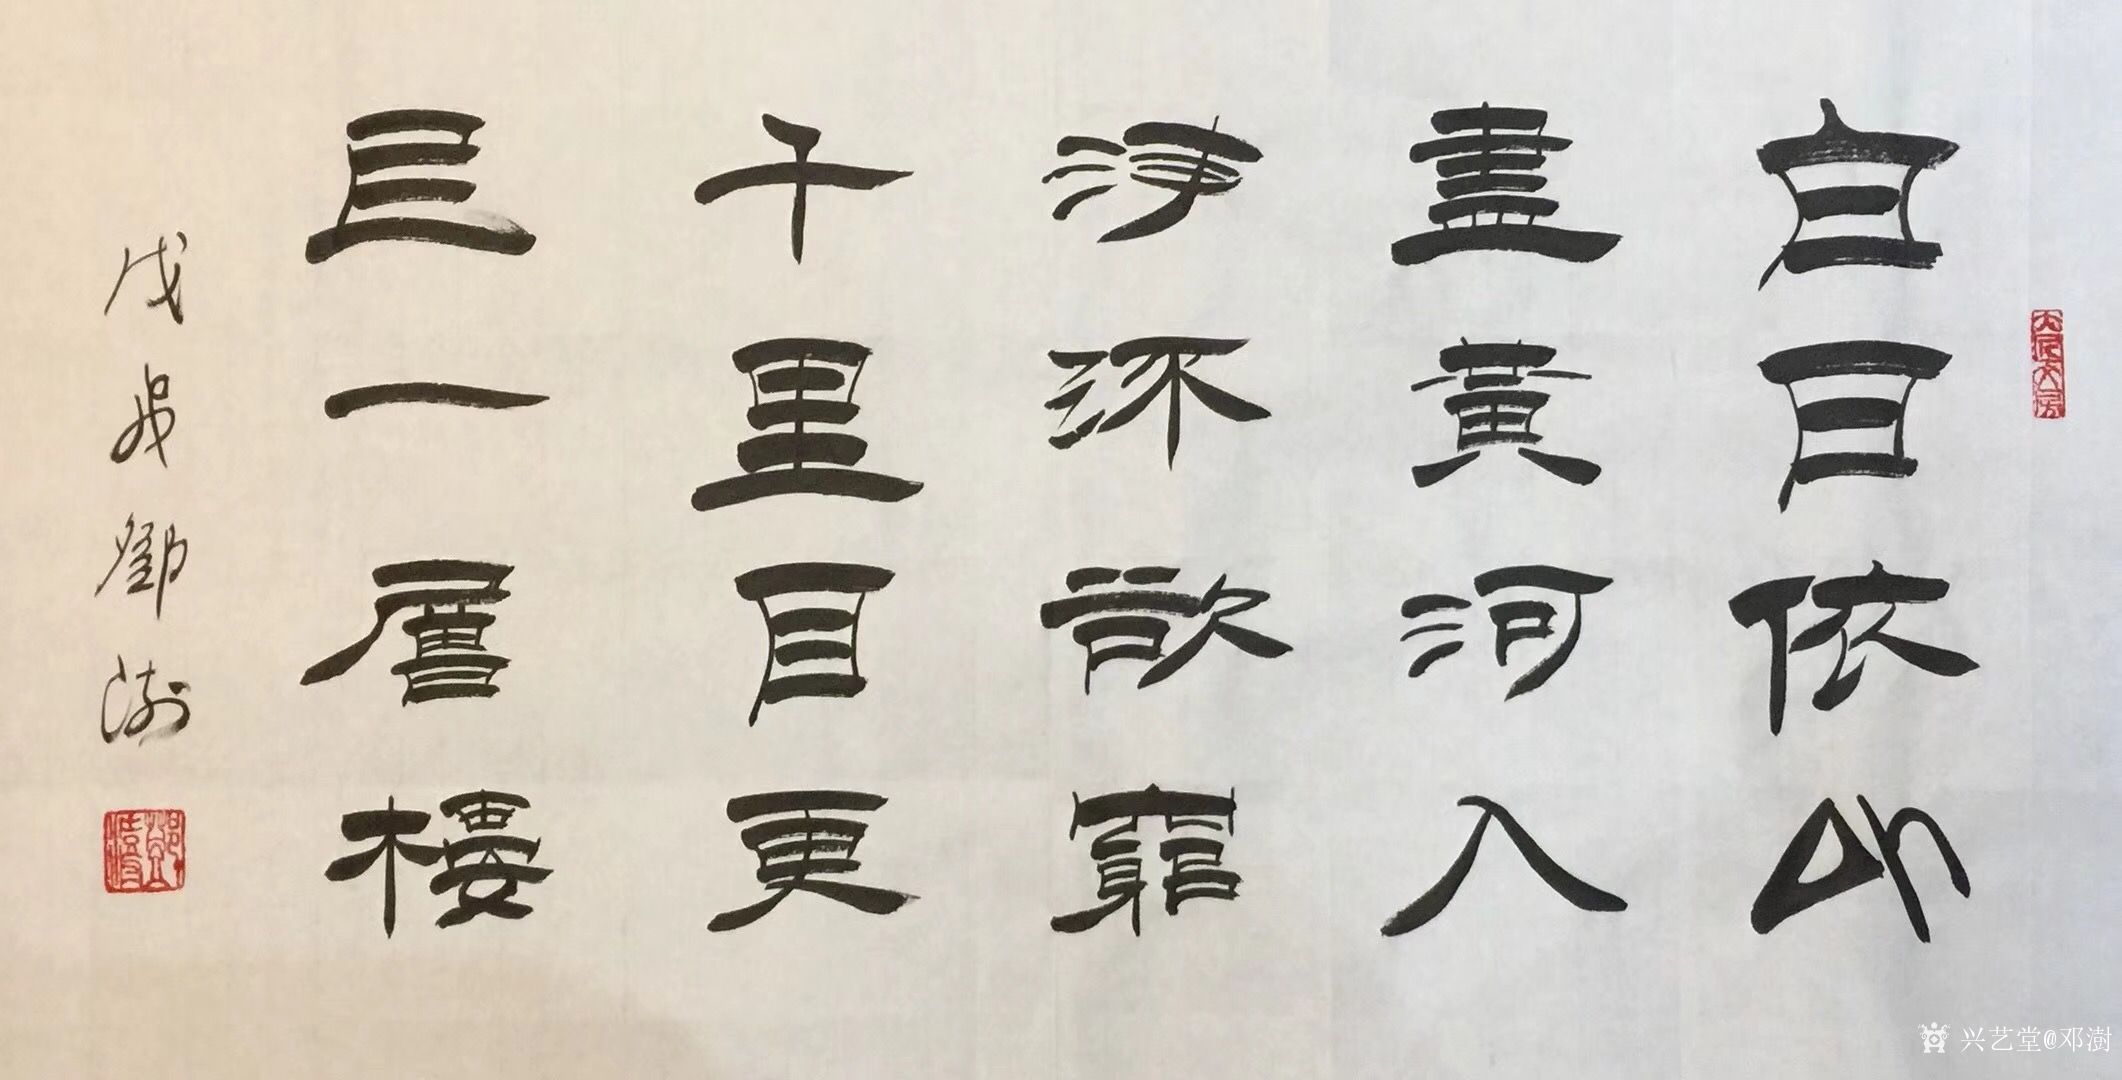 白日依山
盡黃河入
海流欲窮
千里目更
上一層樓
戊戌鄧澍
兴艺堂@邓澍